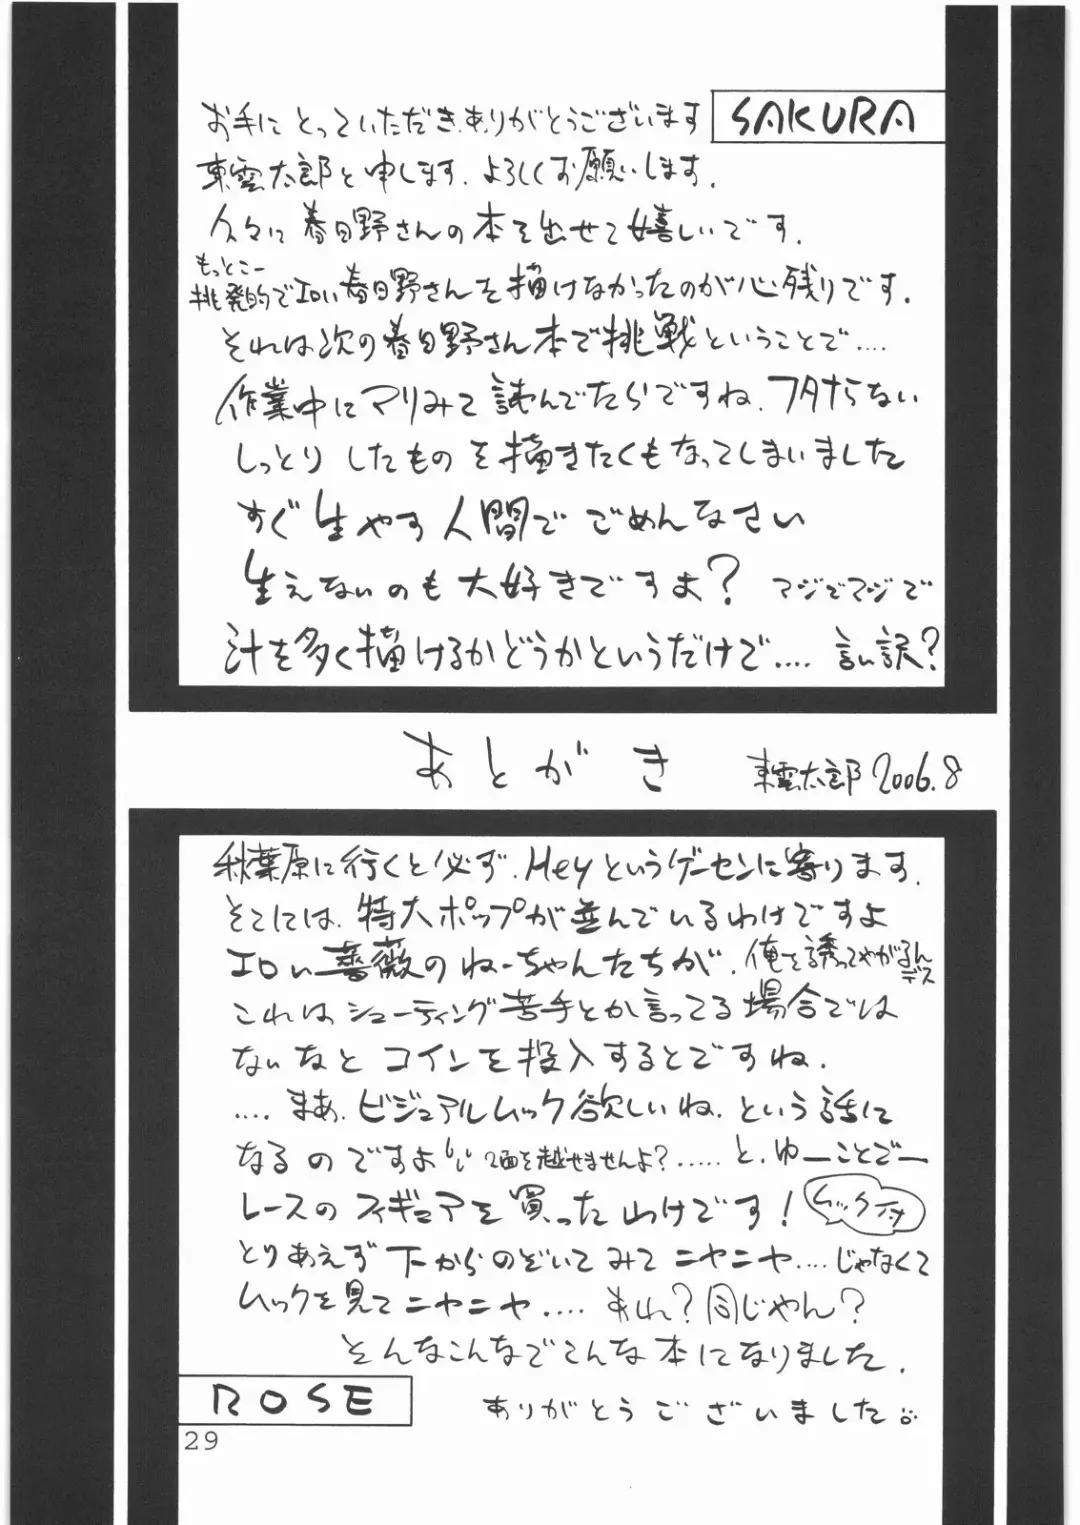 SAKURA
お手にとっていただきありがとうございます
東雲太郎と申します。よろしくお願いします。
久々に春日野さんの本を出せて嬉しいです。
もっとこー
挑発的でエロい春日野さんを描けなかったのが心残りです。
それは次の春日野さん本で挑戦ということで....
作業中にマリみて読んでたらですね、フタナらない
しっとりしたものを描きたくもなってしまいました
すぐ生やす人間でごめんなさい
生えないのも大好きですよ? マジでマジで
汁を多く描けるかどうかというだけで.... 言い訳?
あとがき 東雲太郎 2006.8
秋葉原に行くと必ず、Heyというゲーセンに寄ります。
そこには、特大ポップが並んでいるわけですよ
エロい薔薇のねーちゃんたちが、俺を誘ってやがるんデス
これは、シューティング苦手とか言ってる場合では
ないなとコインを投入するとですね、
....まあ、ビジュアルムック欲しいね、という話に
なるのですよ 2面を越せませんよ?.....と、ゆーことでー
レースのフィギュアを買ったわけです! ムック付
とりあえず下からのぞいてみてニヤニヤ....じゃなくて
ムックを見てニヤニヤ.... あれ?同じやん?
そんなこんなでこんな本になりました。
ROSE
ありがとうございました
29